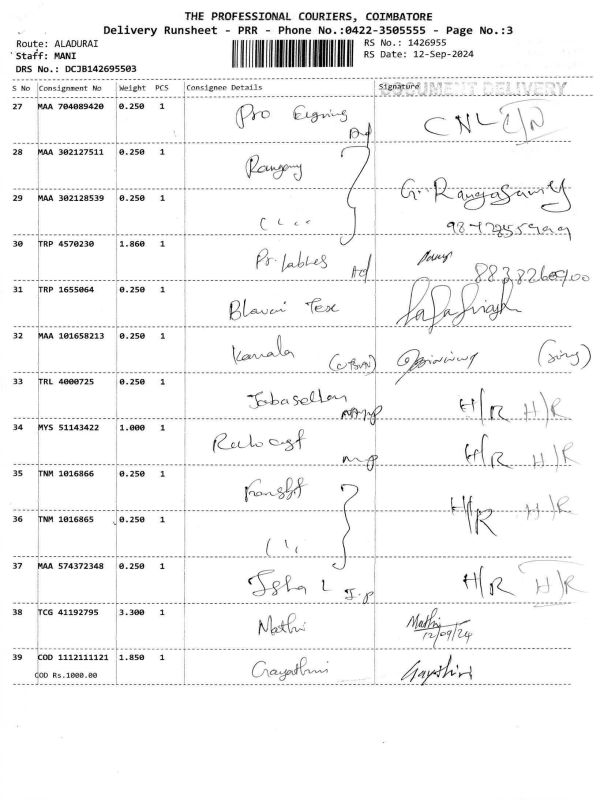 THE PROFESSIONAL COURIERS, COIMBATORE
Delivery Runsheet - PRR - Phone No.:0422-3505555 - Page No.:3
Route: ALADURAI
Staff: MANI
DRS No.: DCJB142695503
RS No.: 1426955
RS Date: 12-Sep-2024
S No Consignment No Weight PCS Consignee Details Signature
DOCUMENT DELIVERY
27 MAA 704089420 0.250 1 Pro CNL
28 MAA 302127511 0.250 1
29 MAA 302128539 0.250 1 G. Rangasamy
30 TRP 4570230 1.860 1
31 TRP 1655064 0.250 1 Tex
32 MAA 101658213 0.250 1 Kamala
33 TRL 4000725 0.250 1 H/R H/R
34 MYS 51143422 1.000 1 H/R H/R
35 TNM 1016866 0.250 1 H/R H/R
36 TNM 1016865 0.250 1
37 MAA 574372348 0.250 1 Isha L H/R H/R
38 TCG 41192795 3.300 1 Mathi Mathi
12/09/24
39 COD 1112111121 1.850 1 Gayathri Gayathiri
COD Rs.1000.00